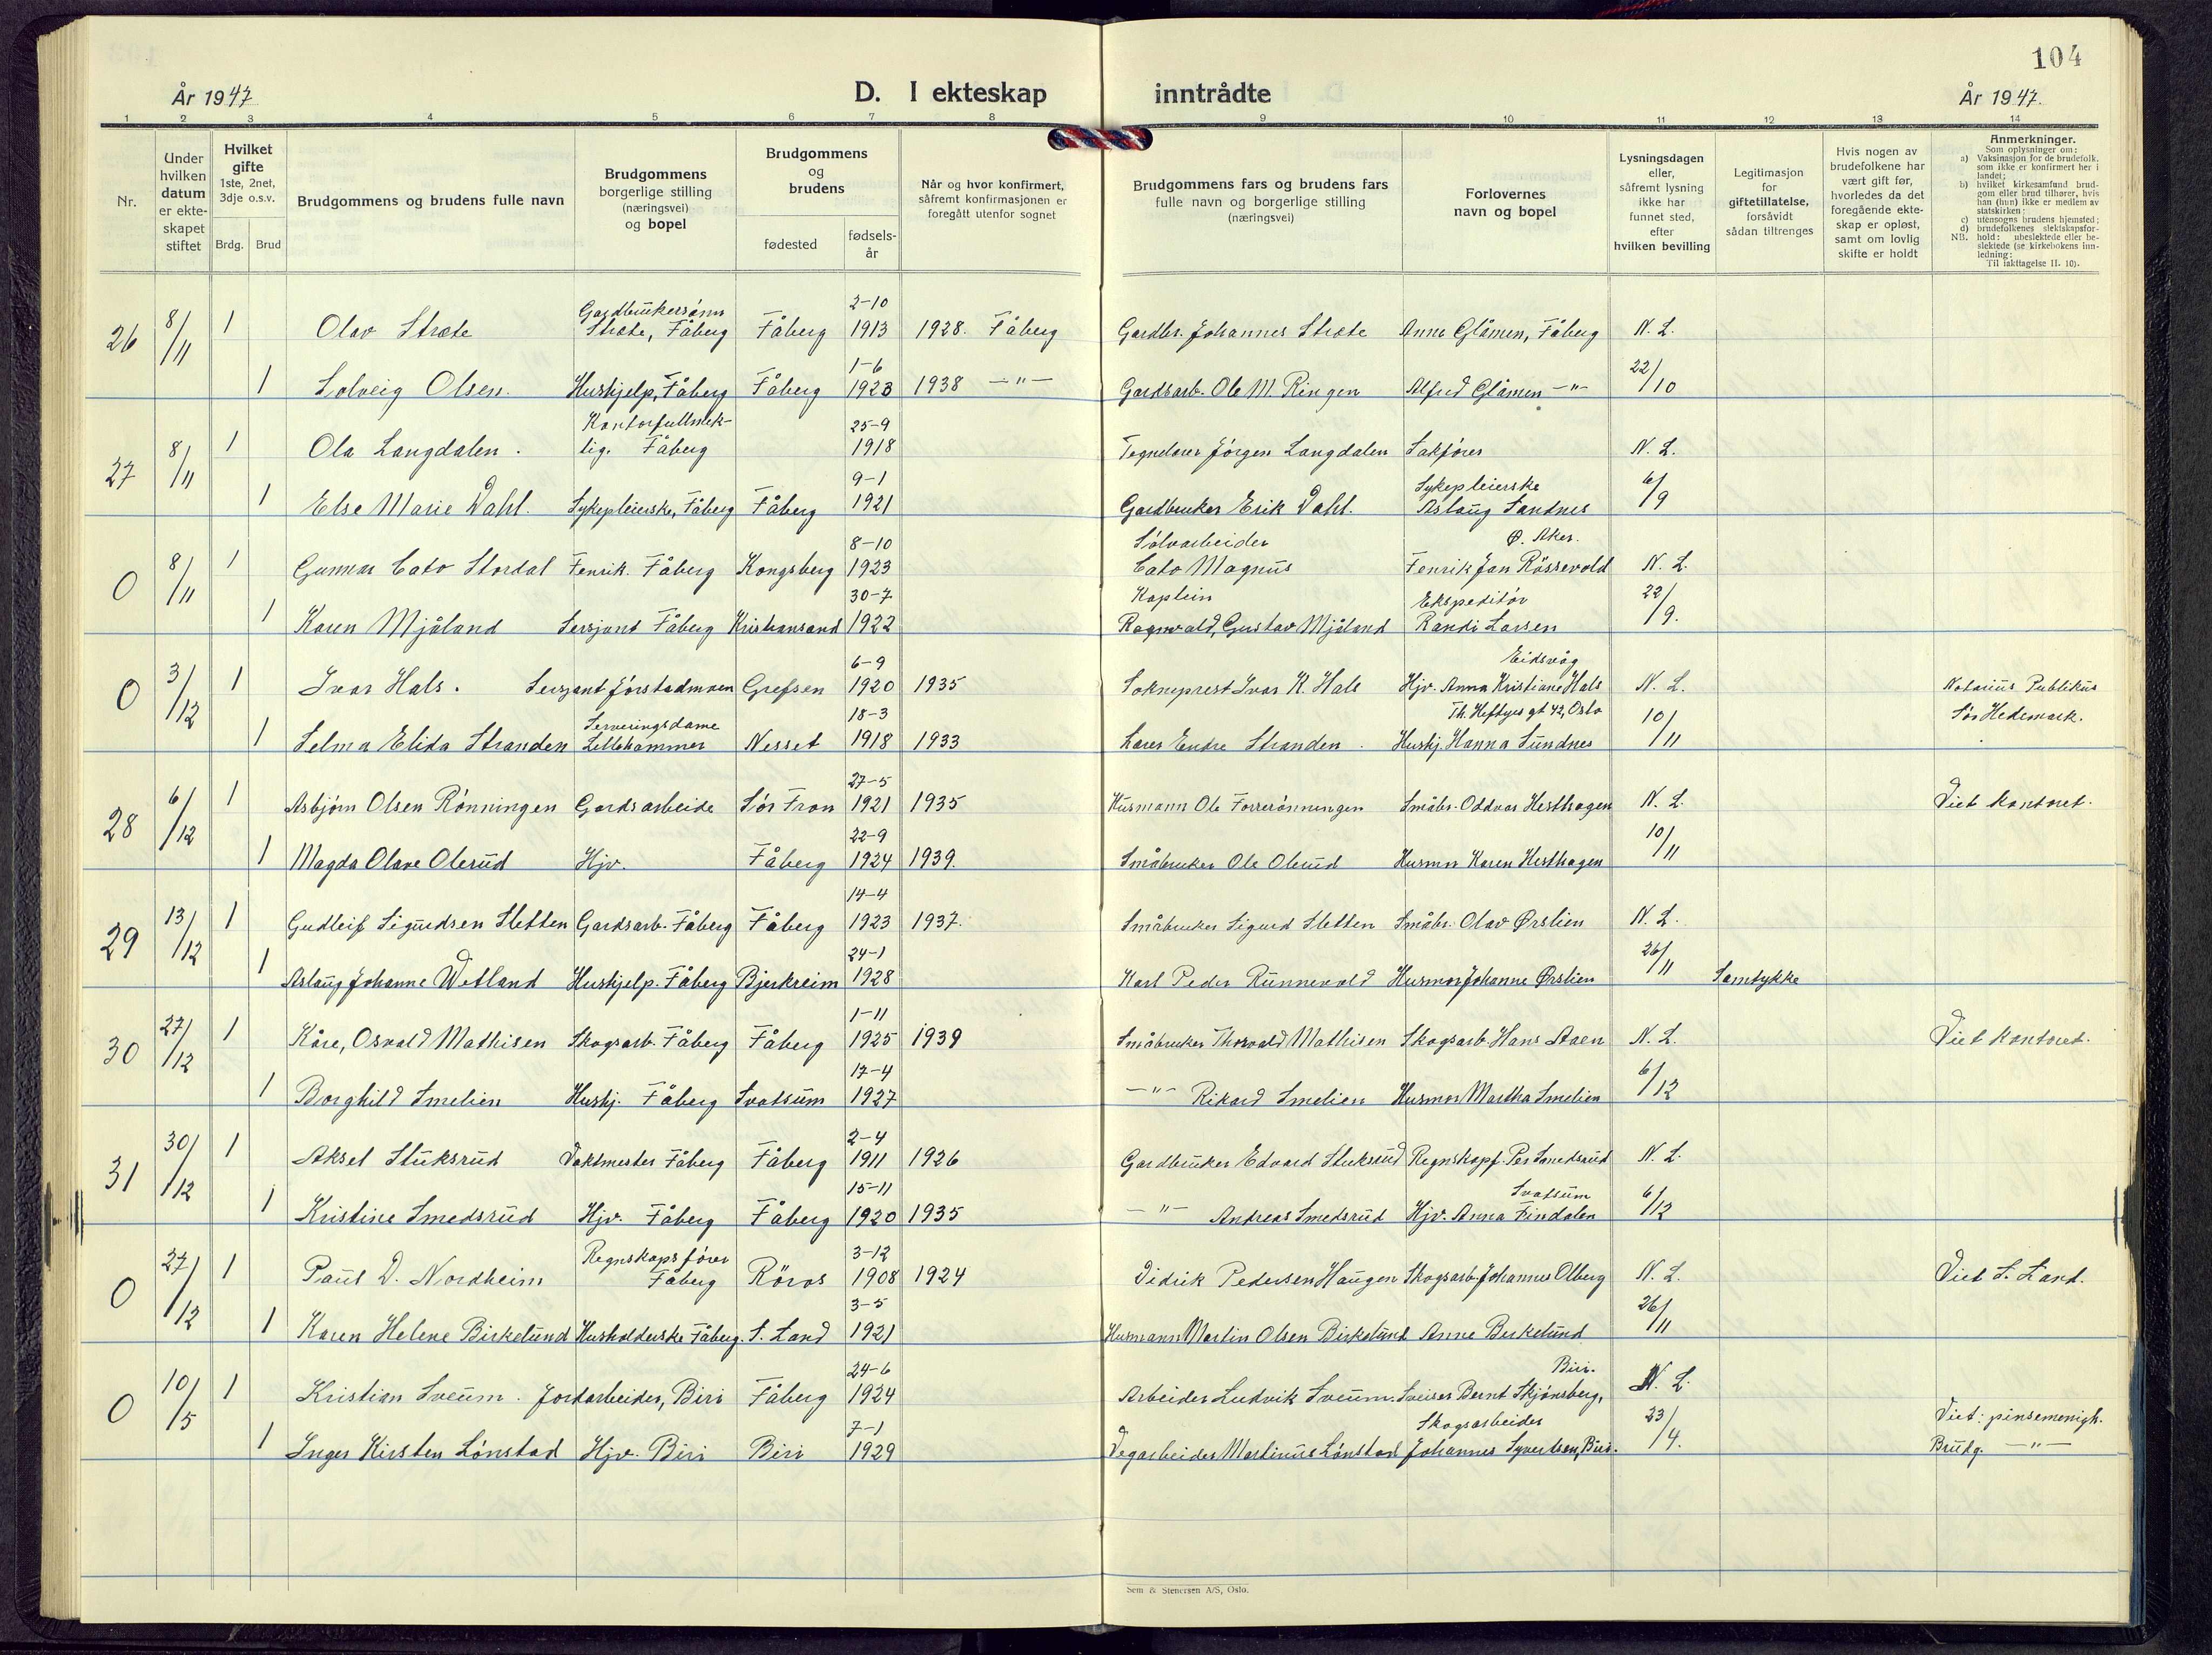 104
År 1947
D. I ekteskap inntrådte
År 1947.
1 2 3 4 5 6 7 8 9 10 11 12 13 14
Nr.
Under hvilken datum er ekteskapet stiftet
Hvilket gifte 1ste, 2net, 3dje o.s.v.
Brdg. Brud
Brudgommens og brudens fulle navn
Brudgommens borgerlige stilling (næringsvei) og bopel
Brudgommens og brudens
fødested
fødsels-år
Når og hvor konfirmert, såfremt konfirmasjonen er foregått utenfor sognet
Brudgommens fars og brudens fars fulle navn og borgerlige stilling (næringsvei)
Forlovernes navn og bopel
Lysningsdagen eller, såfremt lysning ikke har funnet sted, efter hvilken bevilling
Legitimasjon for giftetillatelse, forsåvidt sådan tiltrenges
Hvis nogen av brudefolkene har vært gift før, hvorledes da det foregående ekteskap er opløst, samt om lovlig skifte er holdt
Anmerkninger.
Som oplysninger om:
a) Vaksinasjon for de brudefolk, som ikke er konfirmert her i landet;
b) hvilket kirkesamfund brudgom eller brud tilhører, hvis han (hun) ikke er medlem av statskirken;
c) utensogns brudens hjemsted;
d) brudefolkenes slektskapsforhold: ubeslektede eller beslektede (se kirkebokens innledning:
NB. Til iakttagelse II. 10).
26 8/11 1 Olav Stræte Gardbrukersønn Stræte, Fåberg Fåberg 2-10 1913 1928. Fåberg Gardbr. Johannes Stræte Anne Glåmen, Fåberg N. L.
1 Solveig Olsen. Hushjelp, Fåberg Fåberg 1-6 1923 1938 —"— Gardsarb. Ole M. Ringen Alfred Glåmen —"— 22/10
27 8/11 1 Ola Langdalen. Kontorfullmektig. Fåberg 25-9 1918 Jørgen Langdalen Sakfører N. L.
1 Else Marie Dahl. Sykepleierske, Fåberg Fåberg 9-1 1921 Gardbruker Erik Dahl. Sykepleierske Aslaug Sandnes 6/9
0 8/11 1 Gunnar Cato Stordal Fenrik. Fåberg Kongsberg 8-10 1923 Sølvarbeider Cato Magnus Ø. Aker. Fenrik Jan Røssevold N. L.
1 Karen Mjåland Sersjant Fåberg Kristiansand 30-7 1922 Kaptein Ragnvald, Gustav Mjåland Ekspeditør Randi Larsen 22/9.
0 3/12 1 Ivar Hals. Sersjant Jørstadmoen Grefsen 6-9 1920 1935 Sokneprest Ivar K. Hals Eidsvåg Hjv. Anna Kristiane Hals N. L. Notarius Publikus
1 Selma Elida Stranden Serveringsdame Lillehammer Nesset 18-3 1918 1933 Lærer Endre Stranden. Th. Heftyes gt 42, Oslo Hushj. Hanna Sundnes 10/11 Sør Hedemark.
28 6/12 1 Asbjørn Olsen Rønningen Gardsarbeide Sør Fron 27-5 1921 1935 Husmann Ole Forrerønningen Småbr. Oddvar Hesthagen N. L. Viet kontoret.
1 Magda Olave Olerud Hjv. Fåberg 22-9 1924 1939. Småbruker Ole Olerud Husmor Karen Hesthagen 10/11
29 13/12 1 Gudleif Sigurdsen Sletten Gardsarb. Fåberg Fåberg 14-4 1923 1937. Småbruker Sigurd Sletten Småbr. Olav Ørslien N. L.
1 Aslaug Johanne Wetland Hushjelp. Fåberg Bjerkreim 24-1 1928 Karl Peder Runnevold Husmor Johanne Ørslien 26/11 Samtykke
30 27/12 1 Kåre, Osvald Mathisen Skogsarb. Fåberg Fåberg 1-11 1925 1939 Småbruker Thorvald Mathisen Skogsarb. Hans Staen N. L. Viet kontoret.
1 Borghild Smelien Hushj. Fåberg Svatsum 17-4 1927 —"— Rikard Smelien Husmor Martha Smelien 6/12
31 30/12 1 Aksel Stuksrud Vaktmester Fåberg Fåberg 2-4 1911 1926 Gardbruker Edvard Stuksrud Regnskapf. Per Smedsrud N. L.
1 Kristine Smedsrud Hjv. Fåberg Fåberg 15-11 1920 1935 —"— Andreas Smedsrud Svatsum Hjv. Anna Findalen 6/12
0 27/12 1 Paul D. Nordheim Regnskapsfører Fåberg Røros 3-12 1908 1924 Didrik Pedersen Haugen Skogsarb. Johannes Olberg N. L. Viet S. Land.
1 Karen Helene Birkelund Husholderske Fåberg. S. Land 3-5 1921 Husmann Martin Olsen Birkelund Anne Birkelund 26/11
0 10/5 1 Kristian Sveum. Jordarbeider, Biri Fåberg 24-6 1924 Arbeider Ludvik Sveum. Biri. Sveiser Bernt Skjønsberg, N. L. Viet: pinsemenigh.
1 Inger Kirsten Lønstad Hjv. Biri Biri 7-1 1929 Vegarbeider Martinus Lønstad Skogsarbeider Johannes Syvertsen, Biri. 23/4. Brudg. —"—
Sem & Stenersen A/S, Oslo.